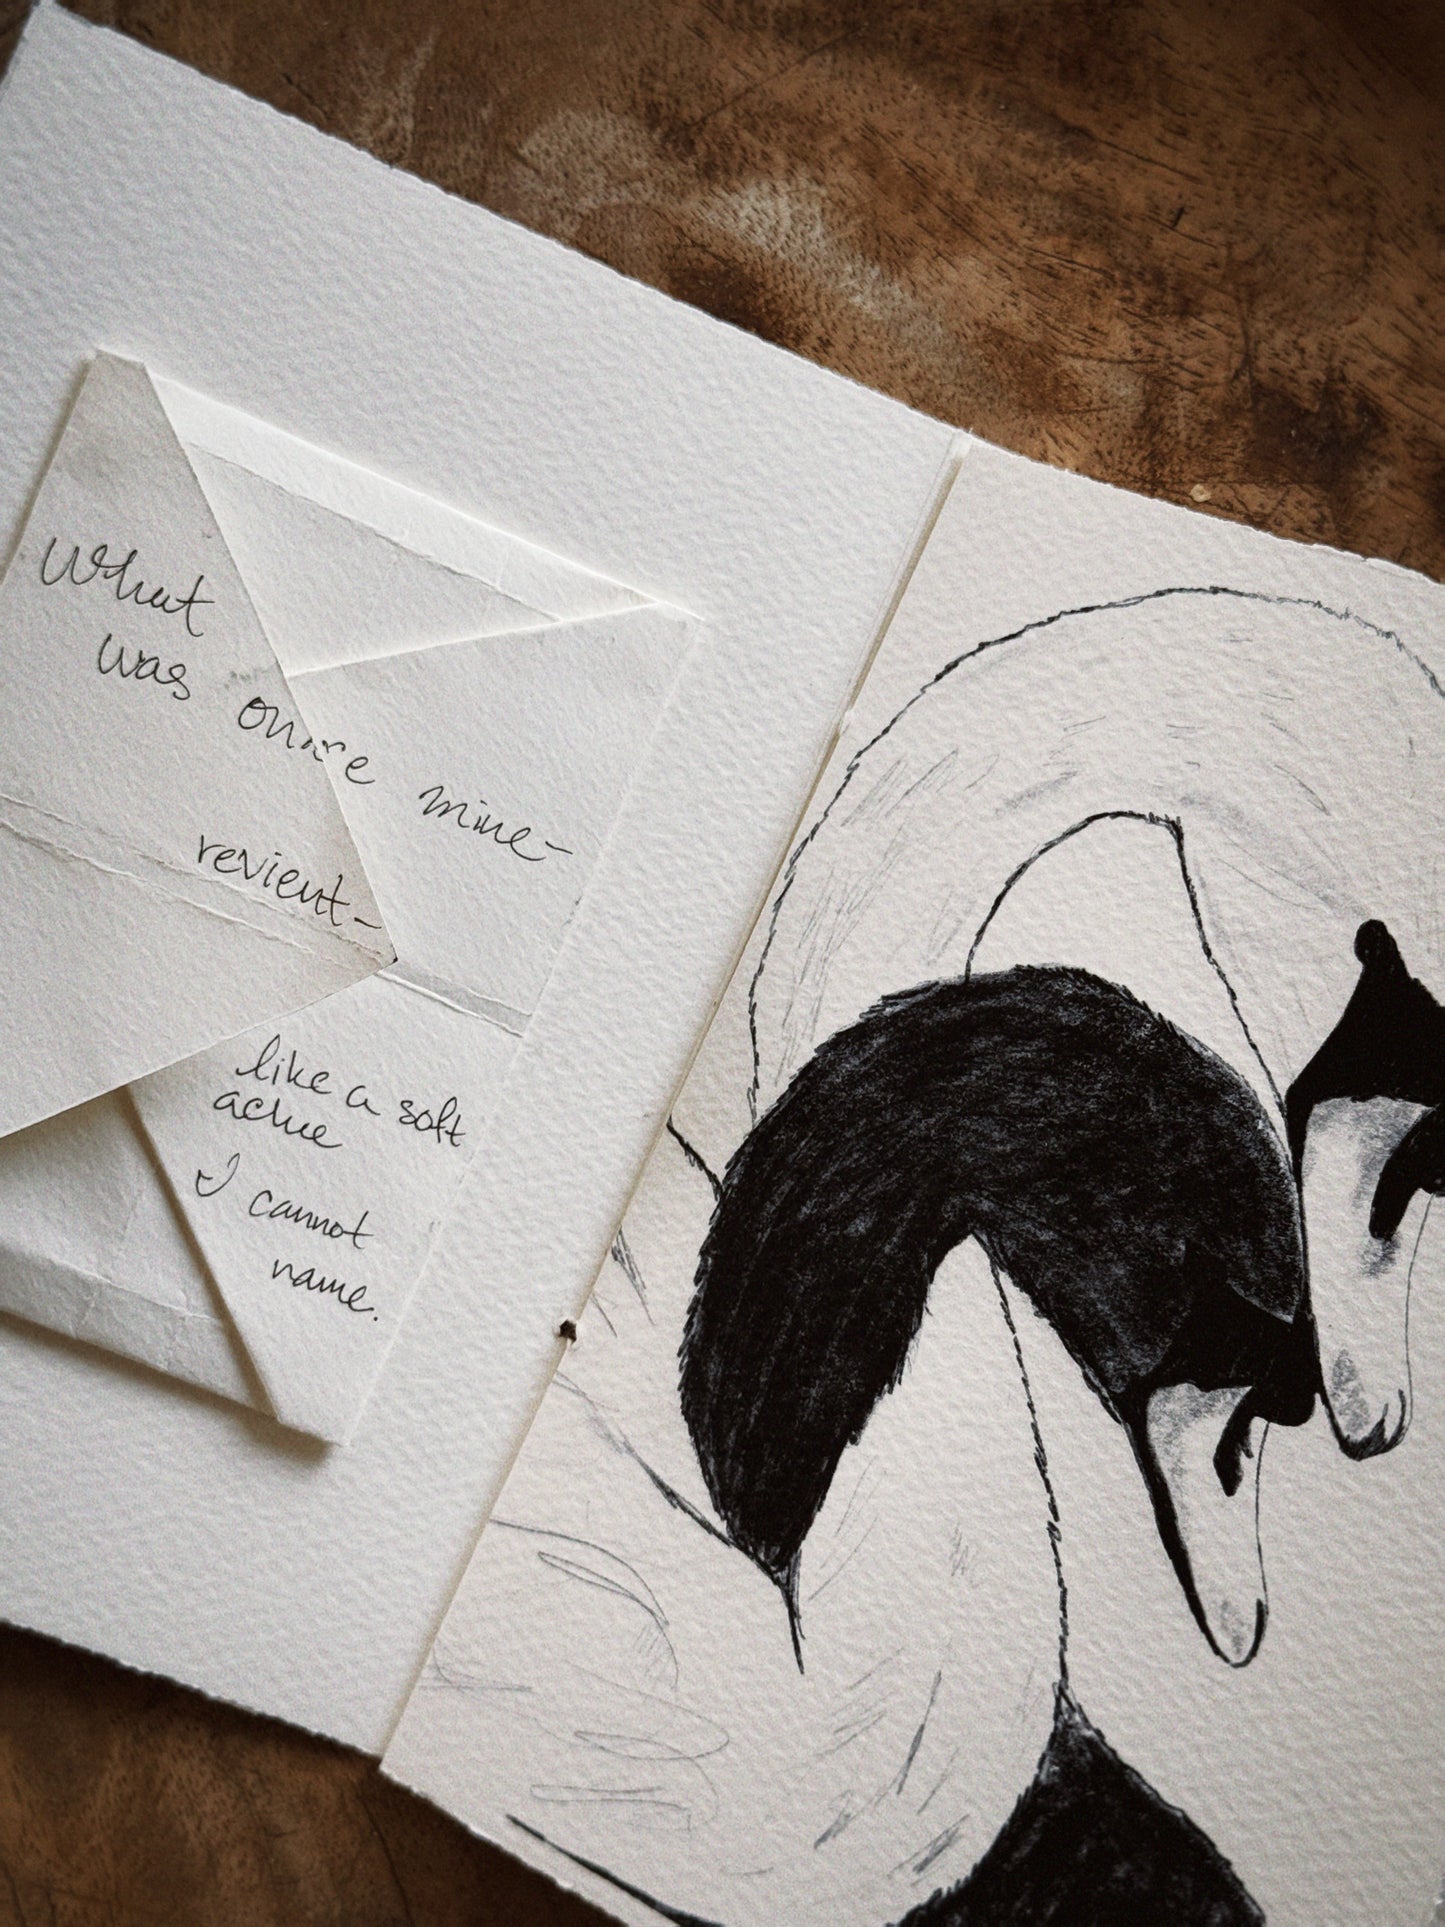 What
was once mine-
revient-
like a soft
ache
I cannot
name.